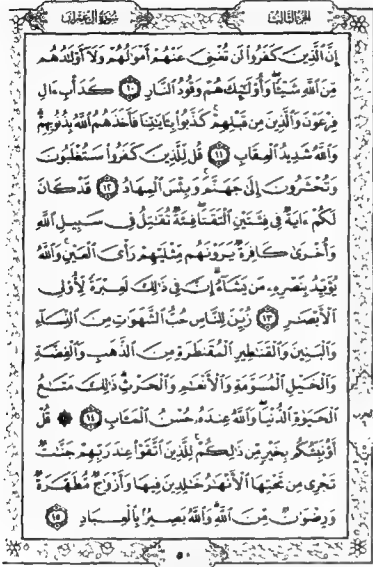 سورة آل عمران
الجزء الثالث
إِنَّ الَّذِينَ كَفَرُوا لَن تُغْنِيَ عَنْهُمْ أَمْوَالُهُمْ وَلَا أَوْلَادُهُم
مِّنَ اللَّهِ شَيْئًا وَأُولَٰئِكَ هُمْ وَقُودُ النَّارِ ١٠ كَدَأْبِ ءَالِ
فِرْعَوْنَ وَالَّذِينَ مِن قَبْلِهِمْ كَذَّبُوا بِـَٔايَٰتِنَا فَأَخَذَهُمُ اللَّهُ بِذُنُوبِهِمْ
وَاللَّهُ شَدِيدُ الْعِقَابِ ١١ قُل لِّلَّذِينَ كَفَرُوا سَتُغْلَبُونَ
وَتُحْشَرُونَ إِلَىٰ جَهَنَّمَ وَبِئْسَ الْمِهَادُ ١٢ قَدْ كَانَ
لَكُمْ ءَايَةٌ فِي فِئَتَيْنِ الْتَقَتَا فِئَةٌ تُقَٰتِلُ فِي سَبِيلِ اللَّهِ
وَأُخْرَىٰ كَافِرَةٌ يَرَوْنَهُم مِّثْلَيْهِمْ رَأْيَ الْعَيْنِ وَاللَّهُ
يُؤَيِّدُ بِنَصْرِهِ مَن يَشَاءُ إِنَّ فِي ذَٰلِكَ لَعِبْرَةً لِّأُولِي
الْأَبْصَٰرِ ١٣ زُيِّنَ لِلنَّاسِ حُبُّ الشَّهَوَٰتِ مِنَ النِّسَاءِ
وَالْبَنِينَ وَالْقَنَٰطِيرِ الْمُقَنطَرَةِ مِنَ الذَّهَبِ وَالْفِضَّةِ
وَالْخَيْلِ الْمُسَوَّمَةِ وَالْأَنْعَٰمِ وَالْحَرْثِ ذَٰلِكَ مَتَٰعُ
الْحَيَوٰةِ الدُّنْيَا وَاللَّهُ عِندَهُ حُسْنُ الْمَـَٔابِ ١٤ ۞ قُلْ
أَؤُنَبِّئُكُم بِخَيْرٍ مِّن ذَٰلِكُمْ لِلَّذِينَ اتَّقَوْا عِندَ رَبِّهِمْ جَنَّٰتٌ
تَجْرِي مِن تَحْتِهَا الْأَنْهَٰرُ خَٰلِدِينَ فِيهَا وَأَزْوَٰجٌ مُّطَهَّرَةٌ
وَرِضْوَٰنٌ مِّنَ اللَّهِ وَاللَّهُ بَصِيرٌ بِالْعِبَادِ ١٥
٥٠